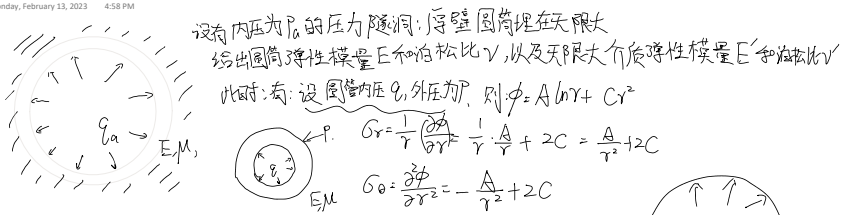 nday, February 13, 2023 4:58 PM
设有内压为Pa的压力隧洞:厚壁圆筒埋在无限大
给出圆筒弹性模量E和泊松比ν,以及无限大介质弹性模量E′和泊松比ν′
此时:有:设圆管内压q,外压为P, 则:φ=Alnr+Cr²
σr=1/r ∂φ/∂r=1/r·A/r+2C=A/r²+2C
σθ=∂²φ/∂r²=-A/r²+2C
qa
E,μ,
P.
q
E,μ